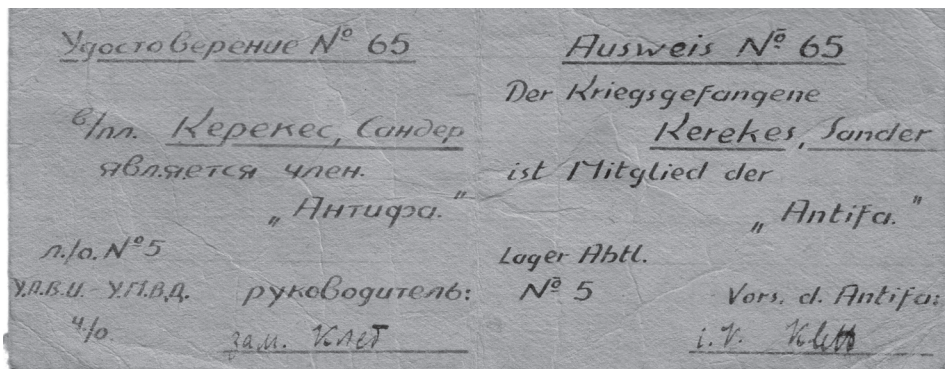 Удостоверение № 65
в/пл. Керекес, Сандер
является член.
„Антифа."
л/о. №5
У.Л.В.И. - У.М.В.Д. руководитель:
ч/о. зам. Клет
Ausweis № 65
Der Kriegsgefangene
Kerekes, Sander
ist Mitglied der
„Antifa."
Lager Abtl.
№ 5 Vors. d. Antifa:
i.V. Klett